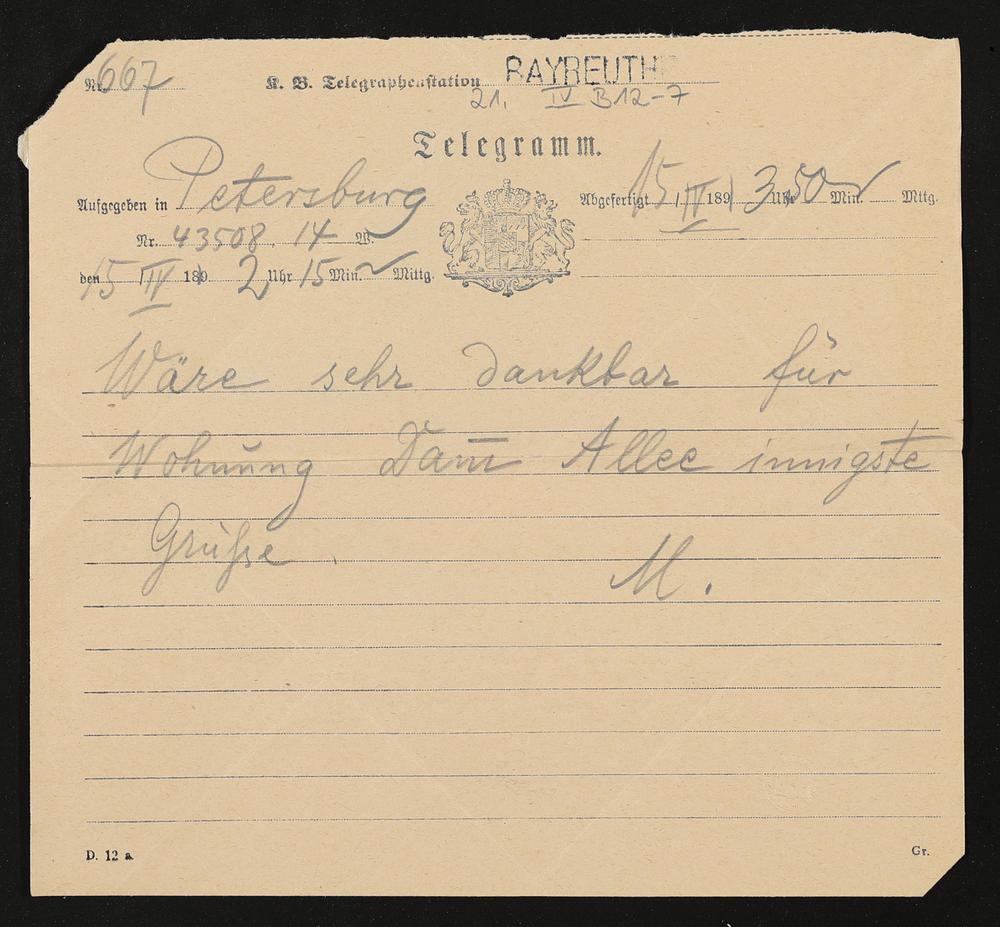 Nr. 667 K. B. Telegraphenstation BAYREUTH
21. IV B 12-7
Telegramm.
Aufgegeben in Petersburg Abgefertigt 15/IV 1891 3 Uhr 50 Min. Mttg.
Nr. 43508. 14 W.
den 15/IV 189 2 Uhr 15 Min. Mittg.
Wäre sehr dankbar für
Wohnung Dam̅ Allee innigste
Grüße.
M.
D. 12 a. Gr.